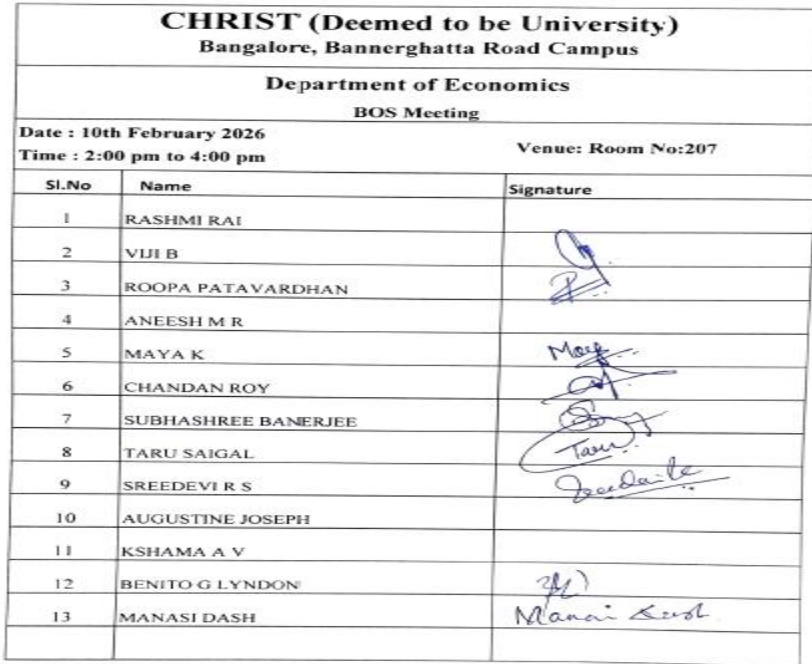 CHRIST (Deemed to be University)
Bangalore, Bannerghatta Road Campus
Department of Economics
BOS Meeting
Date : 10th February 2026
Time : 2:00 pm to 4:00 pm
Venue: Room No:207
Sl.No Name Signature
1 RASHMI RAI
2 VIJI B
3 ROOPA PATAVARDHAN
4 ANEESH M R
5 MAYA K
6 CHANDAN ROY
7 SUBHASHREE BANERJEE
8 TARU SAIGAL Taru
9 SREEDEVI R S
10 AUGUSTINE JOSEPH
11 KSHAMA A V
12 BENITO G LYNDON
13 MANASI DASH